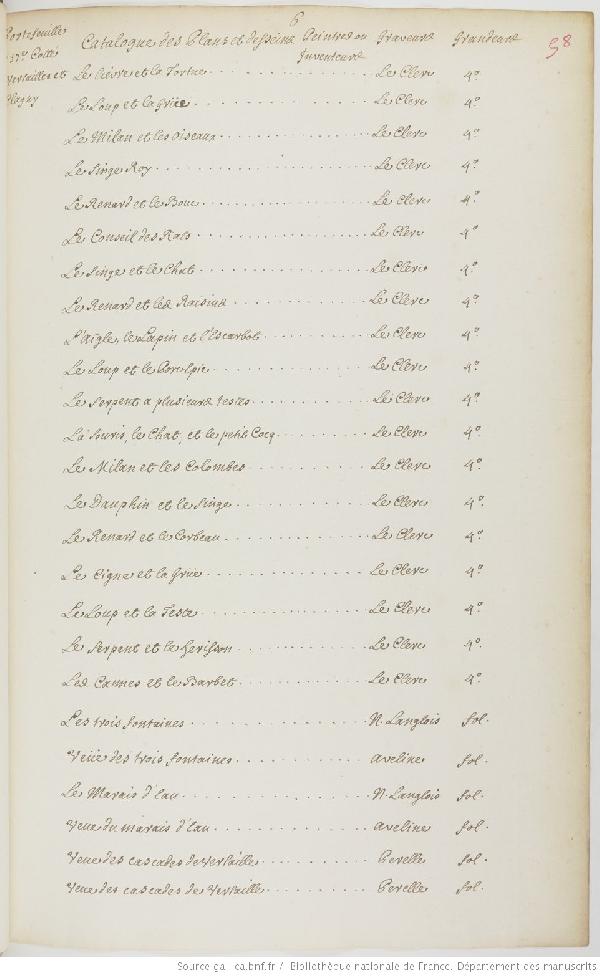 6
Portefeuille Catalogue des Plans et desseins Peintres ou Graveurs Grandeurs 58
Inventeurs
Versailles et
Clagny
Le lièvre et la Tortue Le Clerc 4.º
Le Loup et la grüe Le Clerc 4.º
Le Milan et les Oiseaux Le Clerc 4.º
Le Singe Roy Le Clerc 4.º
Le Renard et le Bouc Le Clerc 4.º
Le Conseil des Rats Le Clerc 4.º
Le Singe et le Chat Le Clerc 4.º
Le Renard et les Raisins Le Clerc 4.º
L'aigle, le Lapin et l'Escarbot Le Clerc 4.º
Le Loup et le Porc épic Le Clerc 4.º
Le Serpent a plusieurs testes Le Clerc 4.º
La Souris, le Chat, et le petit Cocq Le Clerc 4.º
Le Milan et les Colombes Le Clerc 4.º
Le Dauphin et le Singe Le Clerc 4.º
Le Renard et le Corbeau Le Clerc 4.º
Le Cigne et la Grüe Le Clerc 4.º
Le Loup et la Teste Le Clerc 4.º
Le Serpent et le herisson Le Clerc 4.º
Les Cannes et le Barbet Le Clerc 4.º
Les trois fontaines N. Langlois fol.
Veüe des trois fontaines aveline fol.
Le Marais d'eau N. Langlois fol.
Veue du marais d'eau aveline fol.
Veue des cascades de Versaille Perelle fol.
Veue des cascades de Versaille Perelle fol.
Source gallica.bnf.fr / Bibliothèque nationale de France. Département des manuscrits